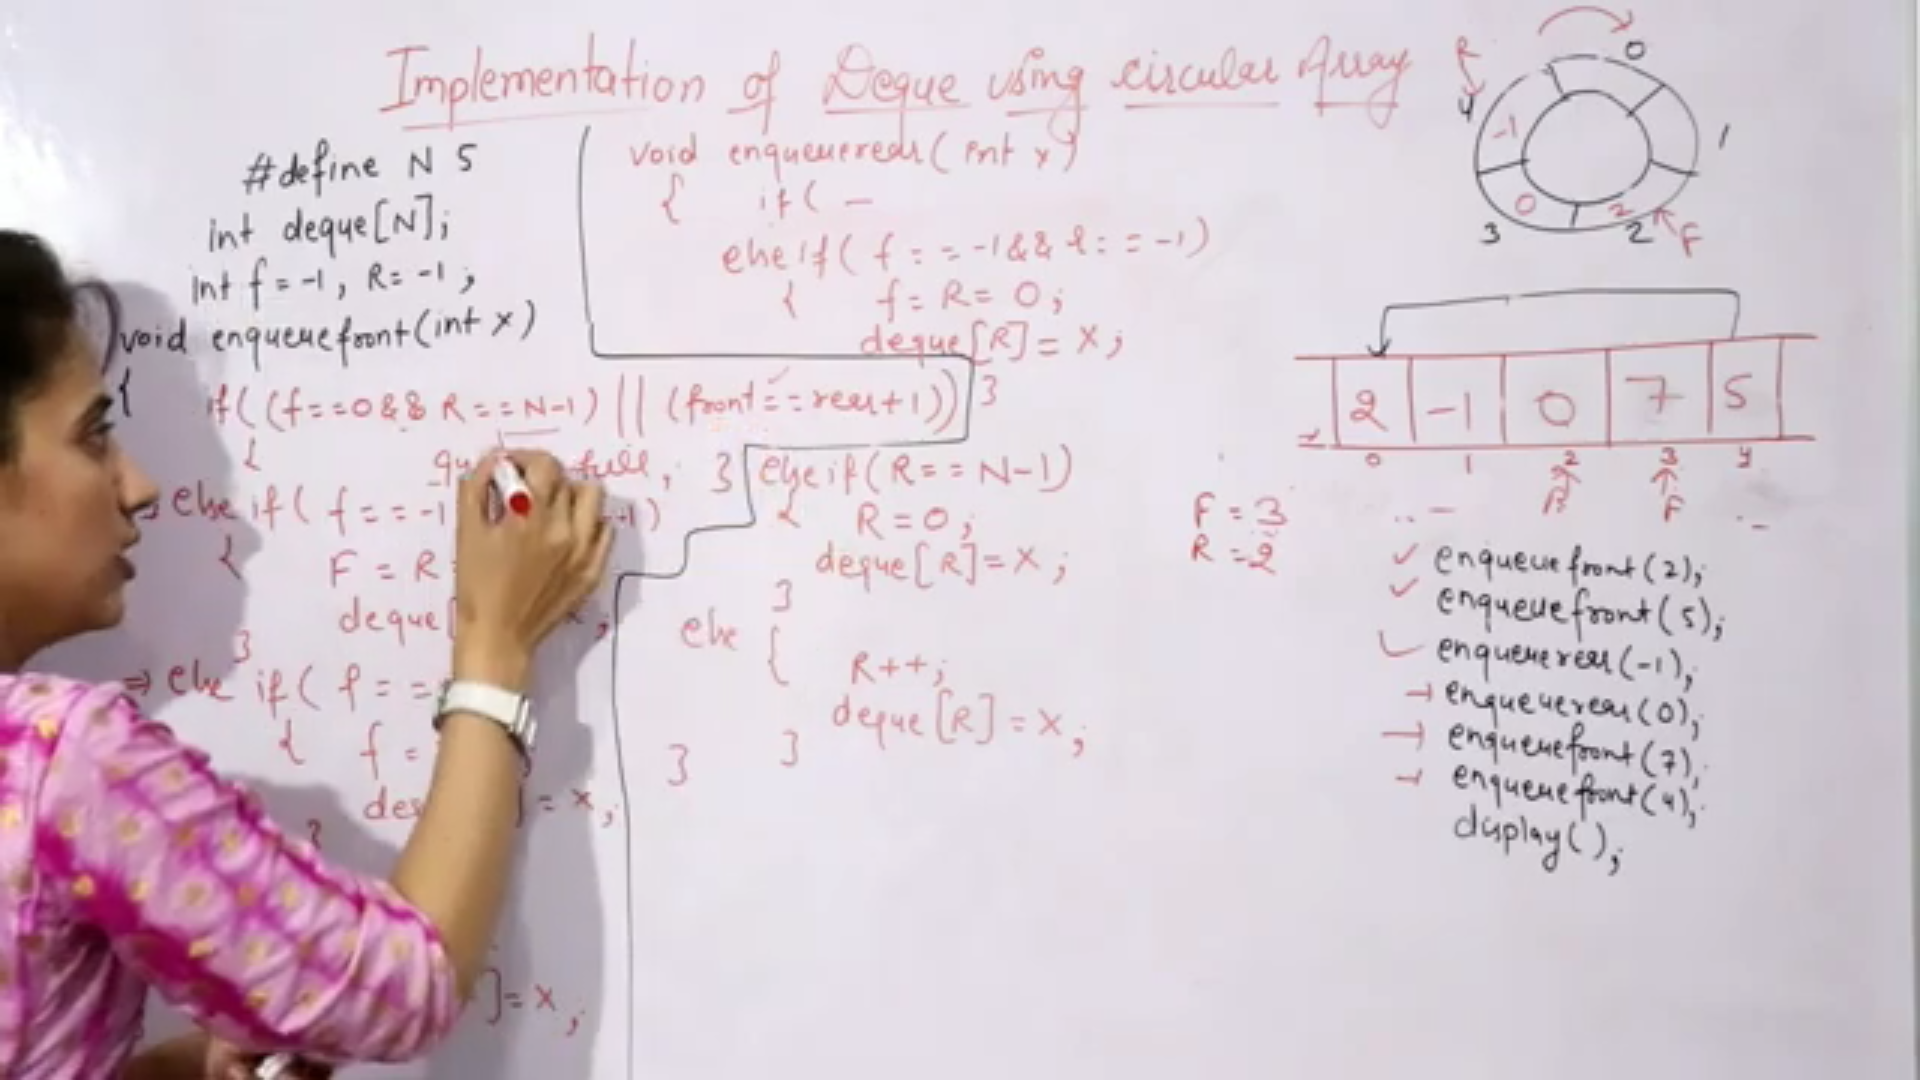 Implementation of Deque using circular Array
#define N 5
int deque[N];
int f = -1, R = -1;
void enqueuefront(int x)
{
if((f==0 && R==N-1) || (front==rear+1))
{
full; }
else if( f == -1
-1)
{
F = R
deque[
x;
}
⇒ else if( f ==
{ f =
= x;
}
]= x;
void enqueuerear(int x)
{ if( –
else if( f == -1 && R == -1)
{ f = R = 0;
deque[R] = x;
}
else if(R == N-1)
{ R = 0;
deque[R] = x;
}
else {
R++;
deque[R] = x;
}
}
R
0
4
1
-1
0
2
3
2
F
2 -1 0 7 5
0 1 2 3 4
R F
F = 3
R = 2
✓ enqueuefront(2);
✓ enqueuefront(5);
enqueuerear(-1);
→ enqueuerear(0);
→ enqueuefront(7);
→ enqueuefront(4);
display();